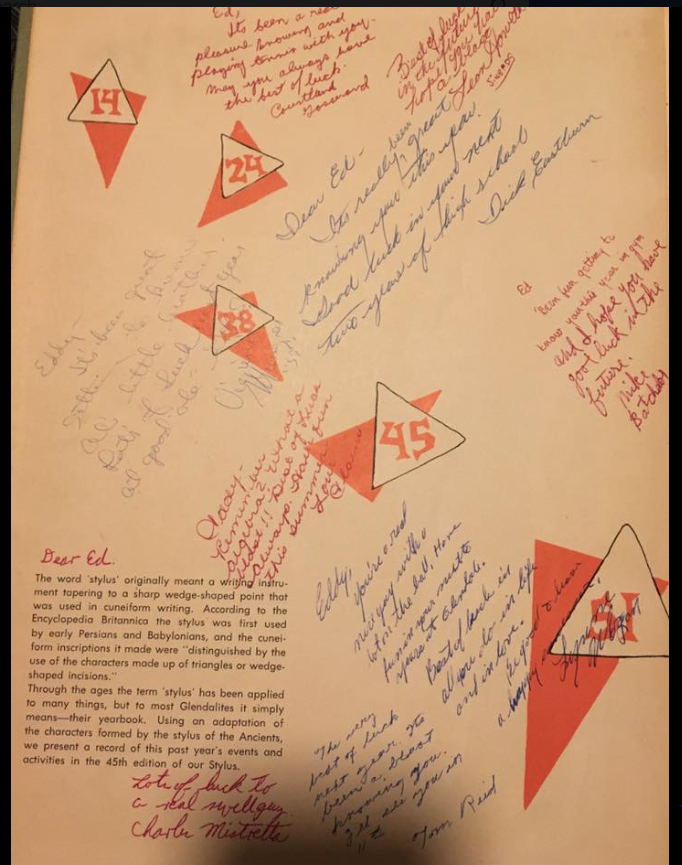 Ed,
Its been a real
pleasure knowing and
playing tennis with you.
May you always have
the best of luck.
Courtland
Best of luck
in the future
hope
a
Leon
14
24
Dear Ed-
Its really been great
knowing you this year.
Good luck in your next
two years of high school
Dick Eastburn
Eddy-
It's been great
Al's little brother
Lots of luck next year
at good ole
38
Ed
Been fun getting to
know you this year in gym
and I hope you have
good luck in the
future.
Mike
Batchelor
45
Remember
algebra? What a
Best of luck
always. Have fun
this summer
Love
Eddy,
You're a real
neat guy with a
lot on the ball. Have
fun in your next
years at Glendale.
Best of luck in
all you do in life
and in love.
Be good & have
a happy summer,
51
Dear Ed.
The word 'stylus' originally meant a writing instru-
ment tapering to a sharp wedge-shaped point that
was used in cuneiform writing. According to the
Encyclopedia Britannica the stylus was first used
by early Persians and Babylonians, and the cunei-
form inscriptions it made were "distinguished by the
use of the characters made up of triangles or wedge-
shaped incisions."
Through the ages the term 'stylus' has been applied
to many things, but to most Glendalites it simply
means—their yearbook. Using an adaptation of
the characters formed by the stylus of the Ancients,
we present a record of this past year's events and
activities in the 45th edition of our Stylus.
Lots of luck to
a real swell guy.
Charlie Mistretta
The very
best of luck
next year. Its
been a blast
knowing you.
I'll see you in
Tom Reid